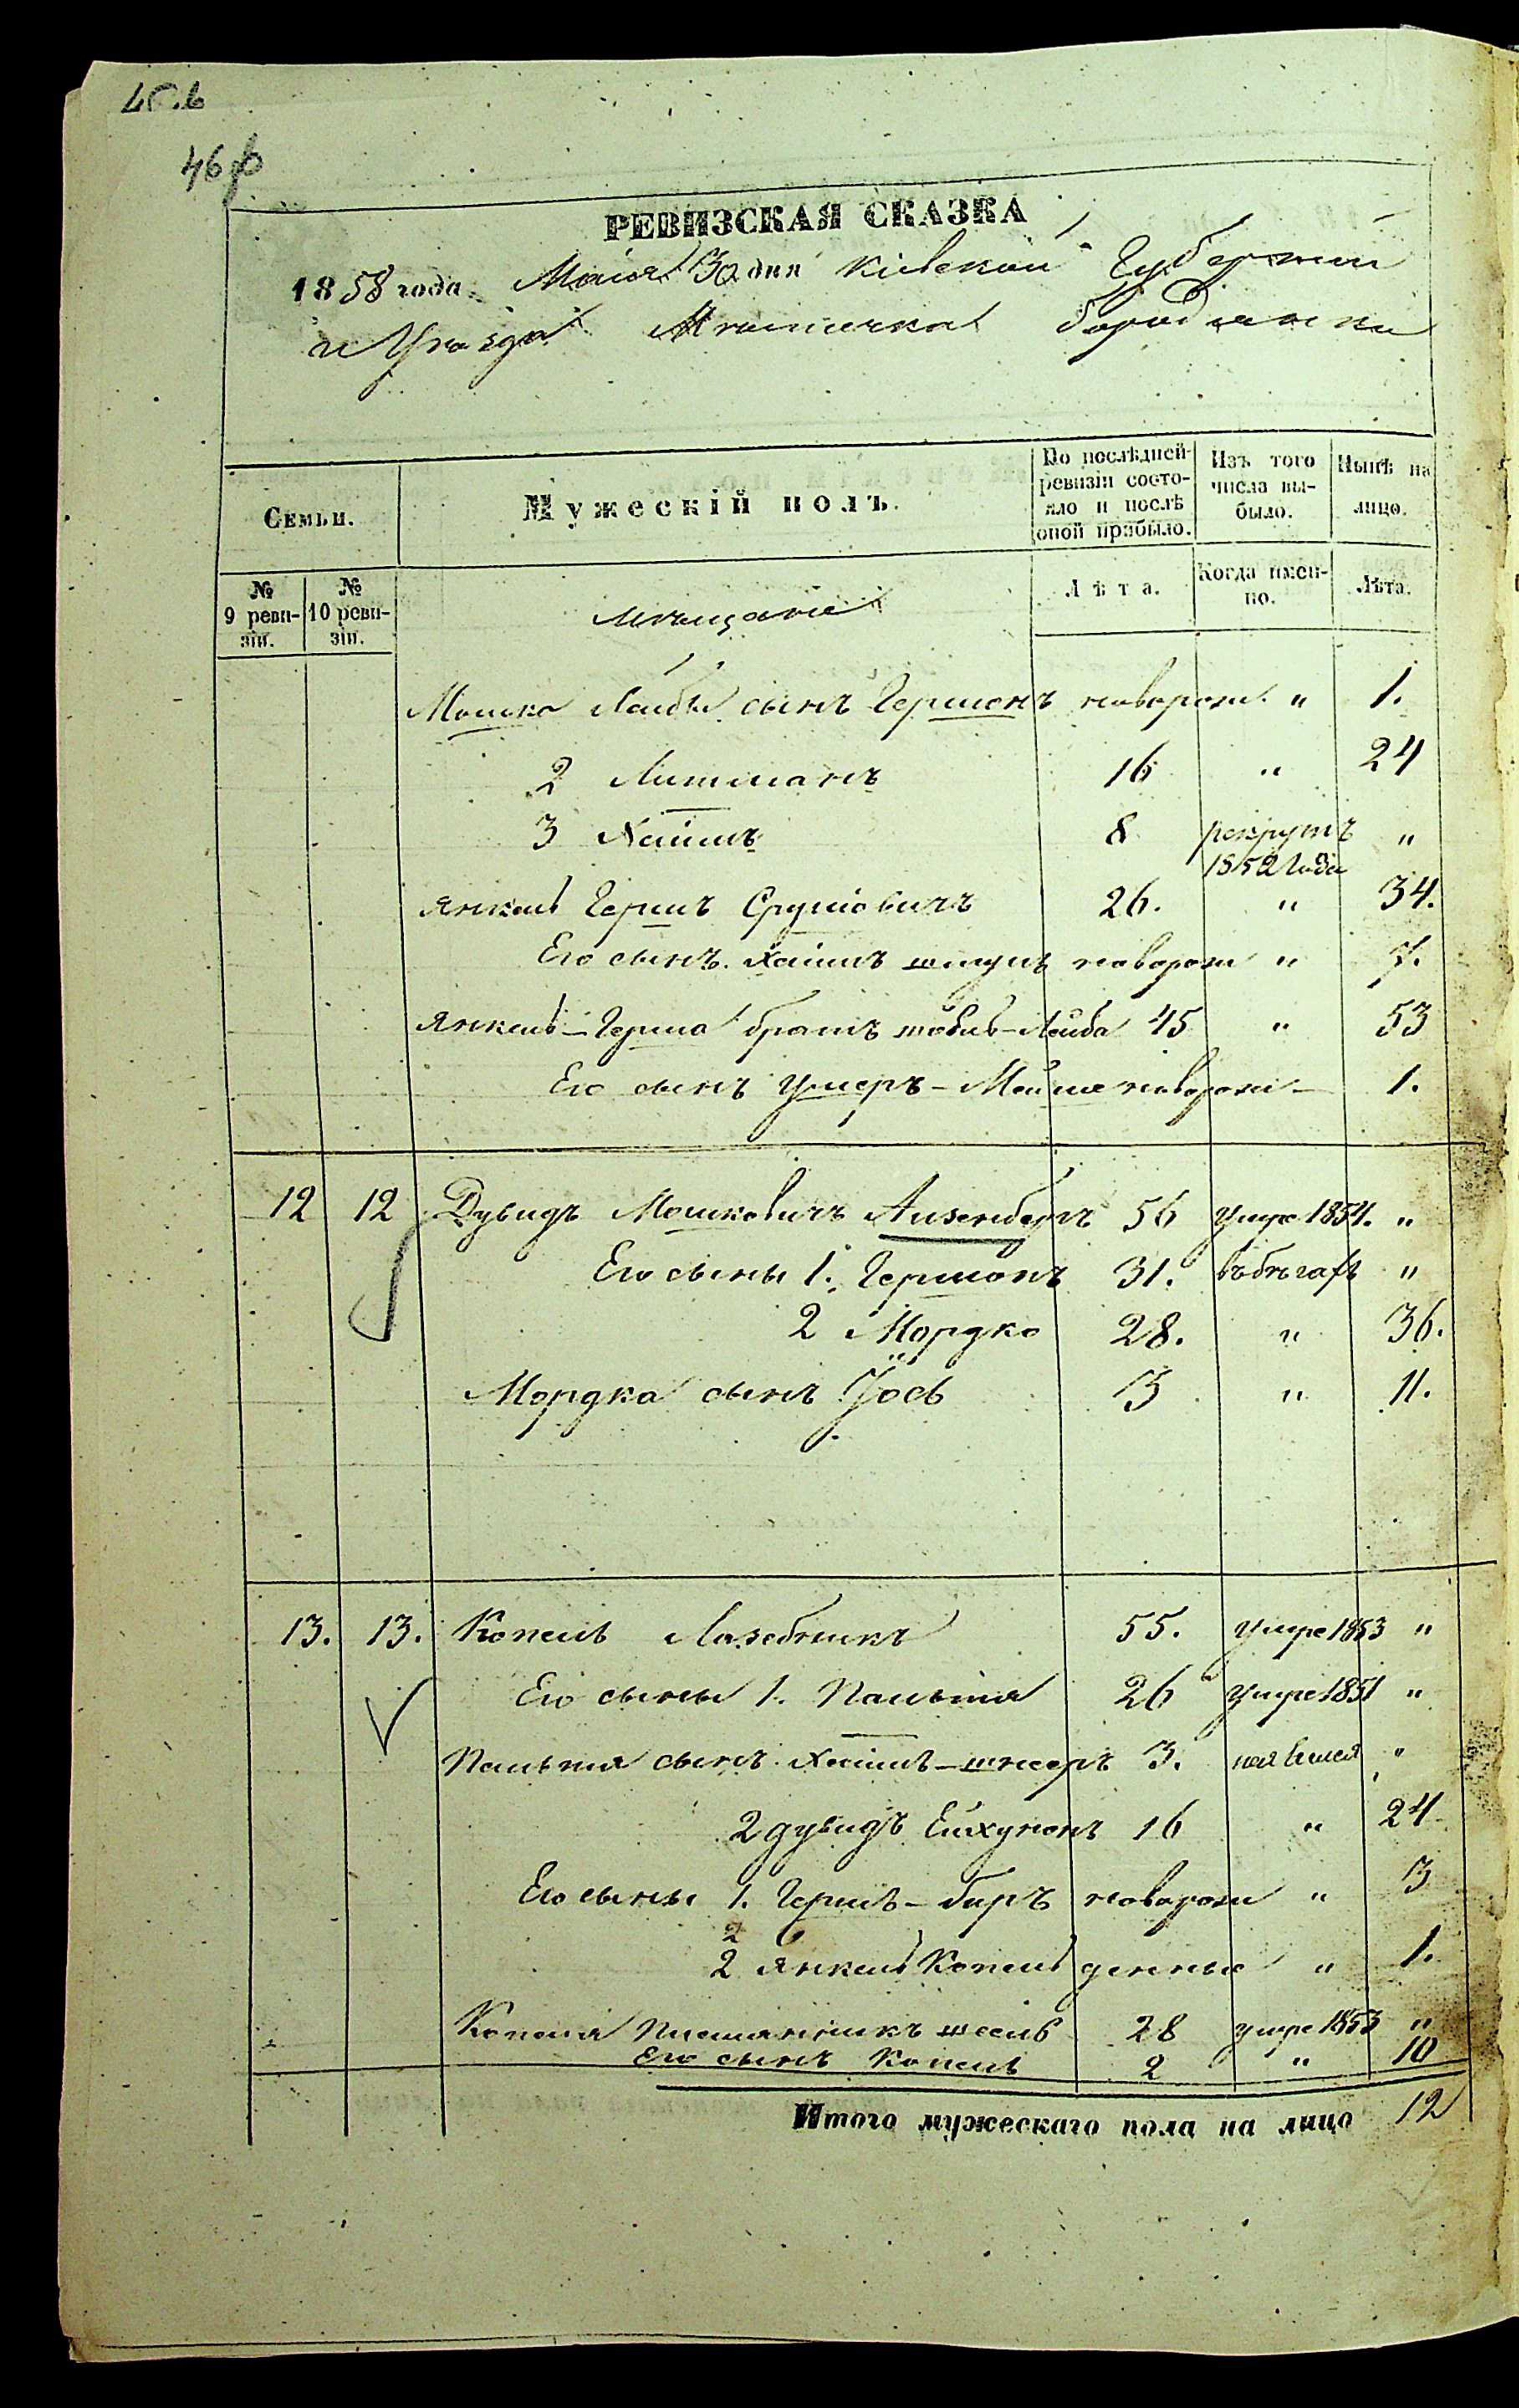 46 ф
РЕВИЗСКАЯ СКАЗКА
1858 года Маія 30 дня Кіевской Губерніи
и Уѣзда Мѣстечка Бородянки
Семьи.
Мужескій полъ.
По послѣдней ревизіи состояло и послѣ оной прибыло.
Изъ того числа выбыло.
Нынѣ на лицо.
№ 9 ревизіи.
№ 10 ревизіи.
мѣщане
Лѣта.
Когда именно.
Лѣта.
Мошко Лейбы сынъ Гершонъ новорож. " 1.
2 Литманъ 16 " 24
3 Хаимъ 8 рекрутъ 1852 года "
Янкель Гершъ Сруліовичъ 26. " 34.
Его сынъ Хаимъ новорож " 7.
Янкель-Герша братъ Лейба 45 " 53
Его сынъ - Мойше новорож - 1.
12 12 Дувидъ Мошковичъ Аизенбергъ 56 умре 1854. "
Его сыны 1. Гершонъ 31. въ бѣгахъ "
2 Мордко 28. " 36.
Мордка сынъ Іось 3 " 11.
13. 13. Копель Лазебникъ 55. умре 1853 "
Его сыны 1. Пальтя 26 умре 1851 "
Пальтия сынъ Хаимъ-шнееръ 3. неявился "
2 дувидъ 16 " 24
Его сыны 1. Гершъ-беръ новорож " 3
2
2 Янкель Копель денные " 1.
Копеля 28 умре 1853 "
Его сынъ Копель 2 " 10
Итого мужескаго пола на лицо 12